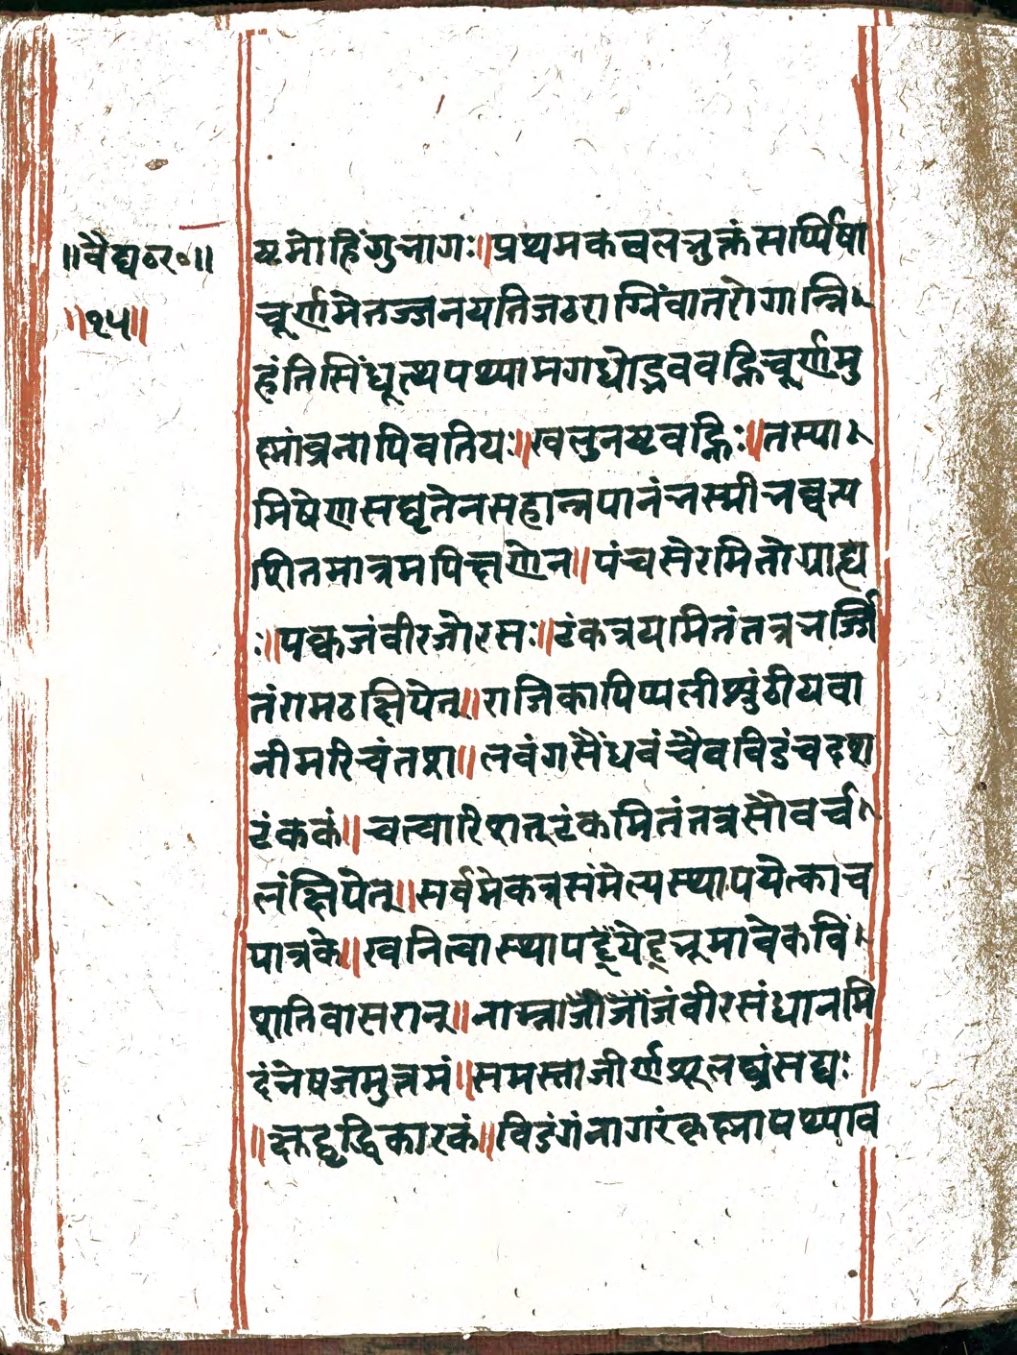 ॥वैद्यठर॰॥
॥१५॥
ष्टमोहिंगुभागः॥प्रथमकवलभुक्तंसर्प्पिषा
चूर्णमेतज्जनयतिजठराग्निंवातरोगान्नि
हंतिसिंधूत्थपथ्यामगधोद्भववह्निचूर्णमु
ष्मांवुनापिवतियः॥खलुनष्टवह्निः॥तस्या
मिषेणसघृतेनसहान्नपानंभस्मीभवत्य
शितमात्रमपिक्षणेन॥पंचसेरमितोग्राह्य
ः॥पक्वजंवीरजोरसः॥टंकत्रयमितंतत्रभर्ज्जि
तंरामठक्षिपेत्॥राजिकापिप्पलीशुंठीयवा
नीमरिचंतथा॥लवंगसैंधवंचैवविडंचदश
टंककं॥चत्वारिंशत्टंकमितंतत्रसौवर्च
लंक्षिपेत्॥सर्वमेकत्रसंमेल्यस्थापयेत्काच
पात्रके॥खनित्वास्थापयेद्भूमावेकविं
शतिवासरान्॥नाम्नाजंवीरसंधानमि
दंभेषजमुत्तमं॥समस्ताजीर्णशूलघ्नंसद्यः
॥क्षुद्वृद्धिकारकं॥विडंगंनागरंकृष्णापथ्याव